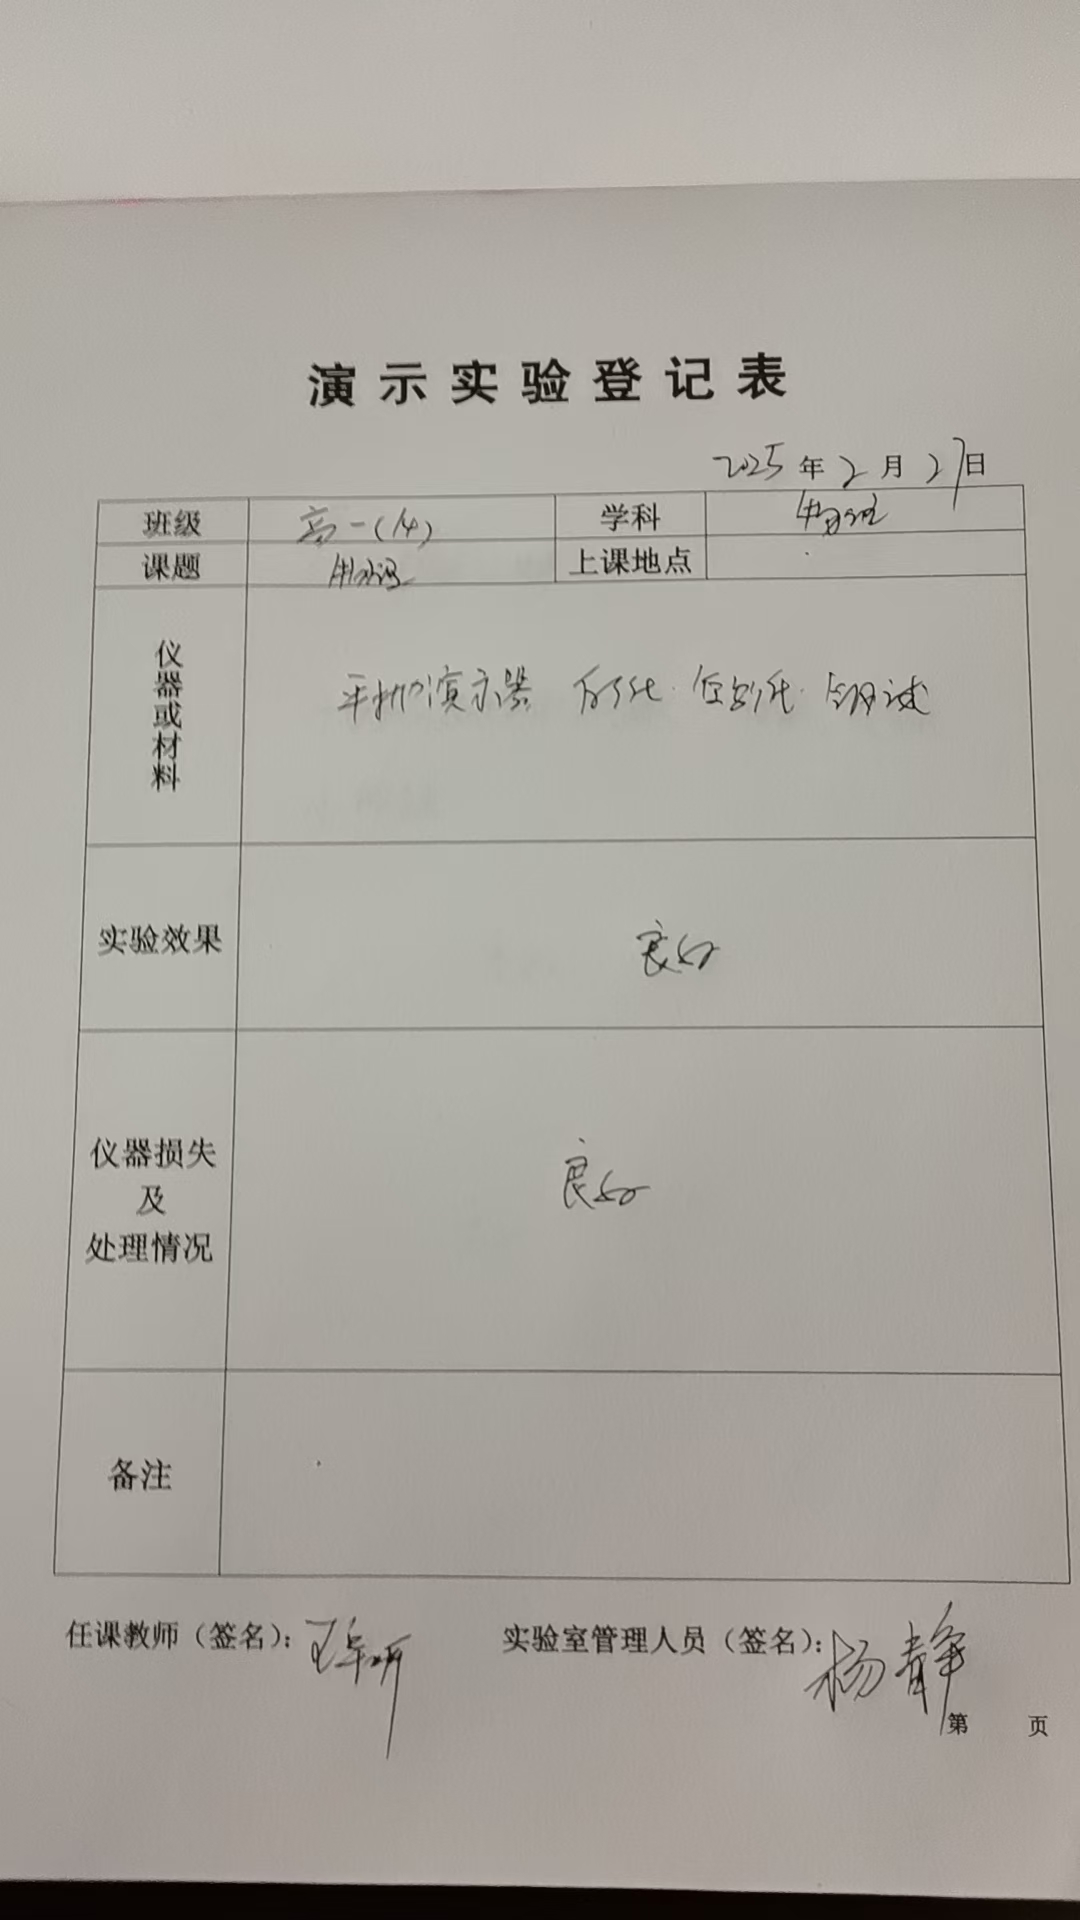 演示实验登记表
2025年2月27日
班级 高一(14) 学科 物理
课题 上课地点
仪器或材料 平抛演示器
实验效果 良好
仪器损失及处理情况 良好
备注
任课教师（签名）： 王 实验室管理人员（签名）：杨静
第 页